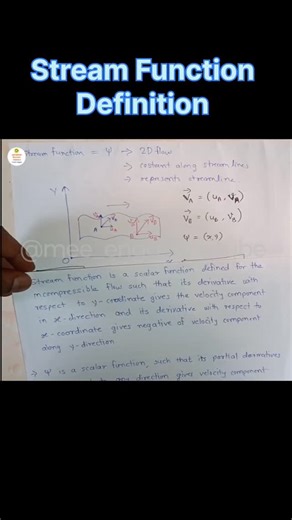 Stream Function
Definition
Stream function = Ψ → 2D flow
→ constant along streamlines
→ represents streamline
Y
A
V⃗A = (uA, VA)
V⃗B = (uB, VB)
Ψ = (x, y)
@mee_
Stream function is a scalar function defined for the
incompressible flow such that its derivative with
respect to y-cordinate gives the velocity component
in x-direction and its derivative with respect to
x-coordinate gives negative of velocity component
along y-direction
→ Ψ is a scalar function, such that its partial derivatives
any direction gives velocity component